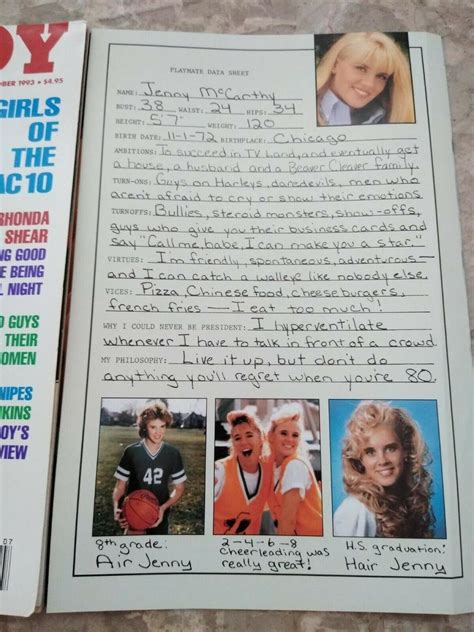 OY
BER 1993 • $4.95
GIRLS
OF
THE
AC 10
RHONDA
SHEAR
NG GOOD
E BEING
L NIGHT
D GUYS
THEIR
OMEN
NIPES
KINS
OY'S
VIEW
07
PLAYMATE DATA SHEET
NAME: Jenny McCarthy
BUST: 38 WAIST: 24 HIPS: 34
HEIGHT: 5'7" WEIGHT: 120
BIRTH DATE: 11-1-72 BIRTHPLACE: Chicago
AMBITIONS: To succeed in TV Land, and eventually get
a house, a husband and a Beaver Cleaver family.
TURN-ONS: Guys on Harleys, daredevils, men who
aren't afraid to cry or show their emotions
TURNOFFS: Bullies, steroid monsters, show-offs,
guys who give you their business cards and
say "Call me, babe, I can make you a star."
VIRTUES: I'm friendly, spontaneous, adventurous—
and I can catch a walleye like nobody else.
VICES: Pizza, Chinese food, cheeseburgers,
french fries — I eat too much!
WHY I COULD NEVER BE PRESIDENT: I hyperventilate
whenever I have to talk in front of a crowd.
MY PHILOSOPHY: Live it up, but don't do
anything you'll regret when you're 80.
42
8th grade:
Air Jenny
2-4-6-8
Cheerleading was
really great!
H.S. graduation:
Hair Jenny